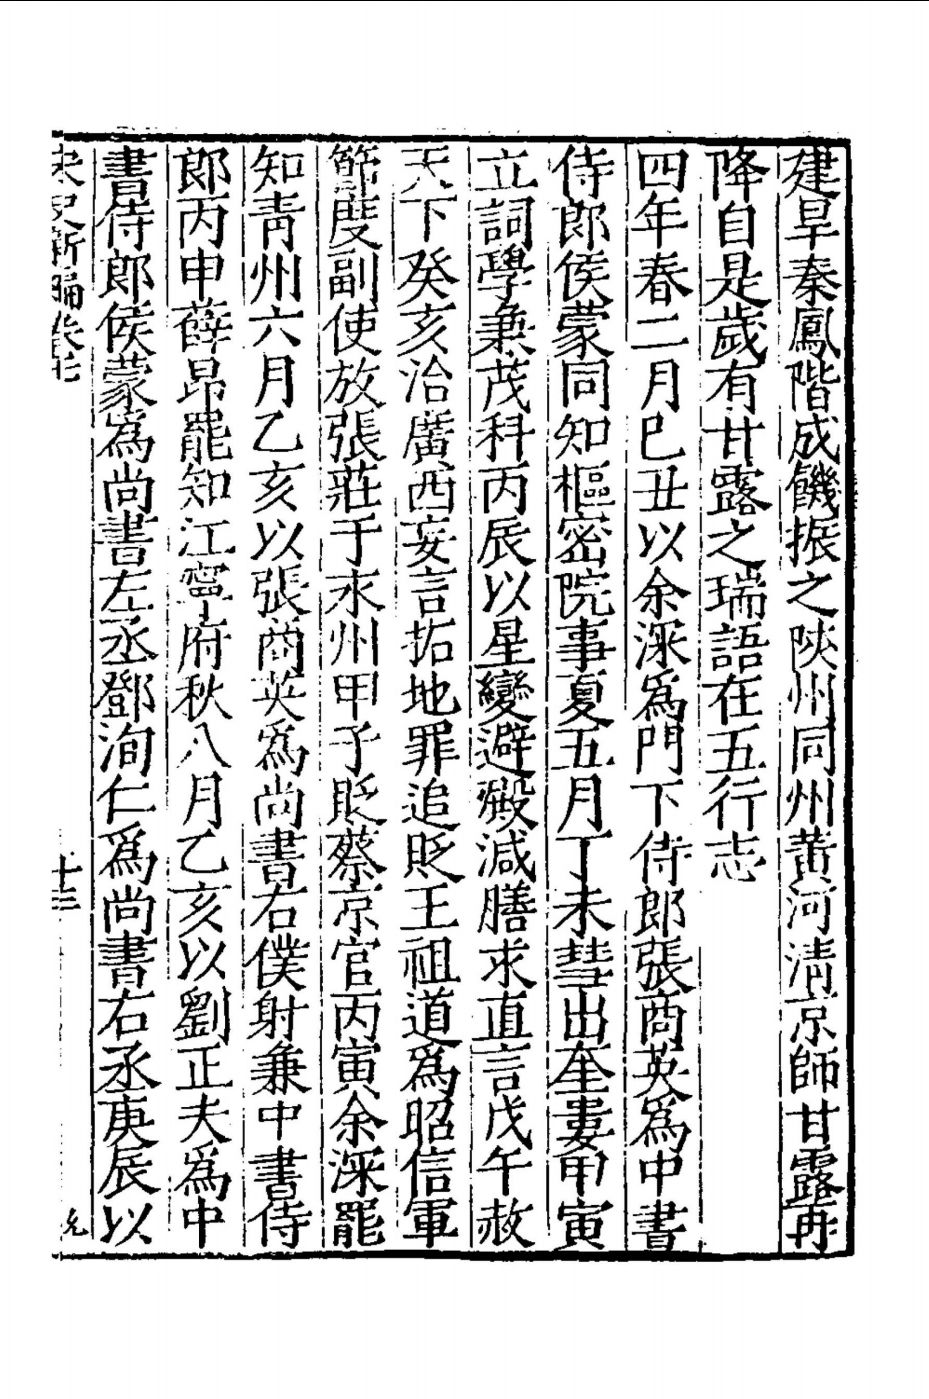 建旱秦鳳階成饑振之陝州同州黃河清京師甘露再
降自是歲有甘露之瑞語在五行志
四年春二月巳丑以余深爲門下侍郎張商英爲中書
侍郎侯蒙同知樞密院事夏五月丁未彗出奎婁甲寅
立詞學兼茂科丙辰以星變避殿減膳求直言戊午赦
天下癸亥治廣西妄言拓地罪追貶王祖道爲昭信軍
節度副使放張莊于永州甲子貶蔡京官丙寅余深罷
知青州六月乙亥以張商英爲尚書右僕射兼中書侍
郎丙申薛昂罷知江寧府秋八月乙亥以劉正夫爲中
書侍郎侯蒙爲尚書左丞鄧洵仁爲尚書右丞庚辰以
宋史新編卷七 十三